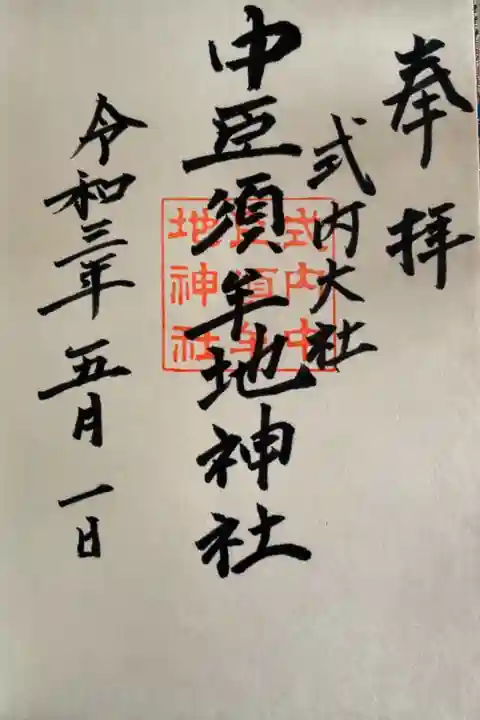 奉拝
式内大社
中臣須牟地神社
式内中
臣須牟
地神社
令和三年五月一日